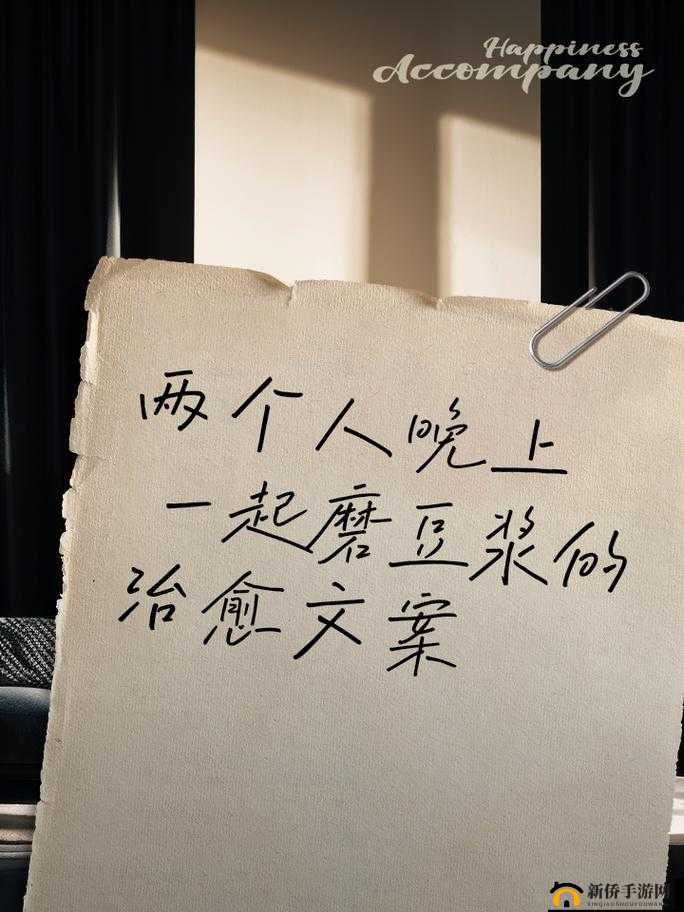 Happiness
Accompany
两个人晚上
一起磨豆浆的
治愈文案
新侨手游网
XINQIAOSHOUYOUWANG